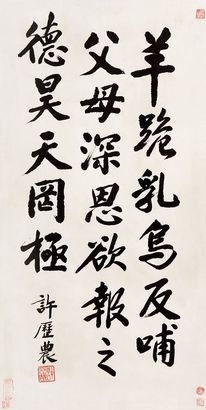 羊跪乳烏反哺
父母深恩欲報之
德昊天罔極
許歷農